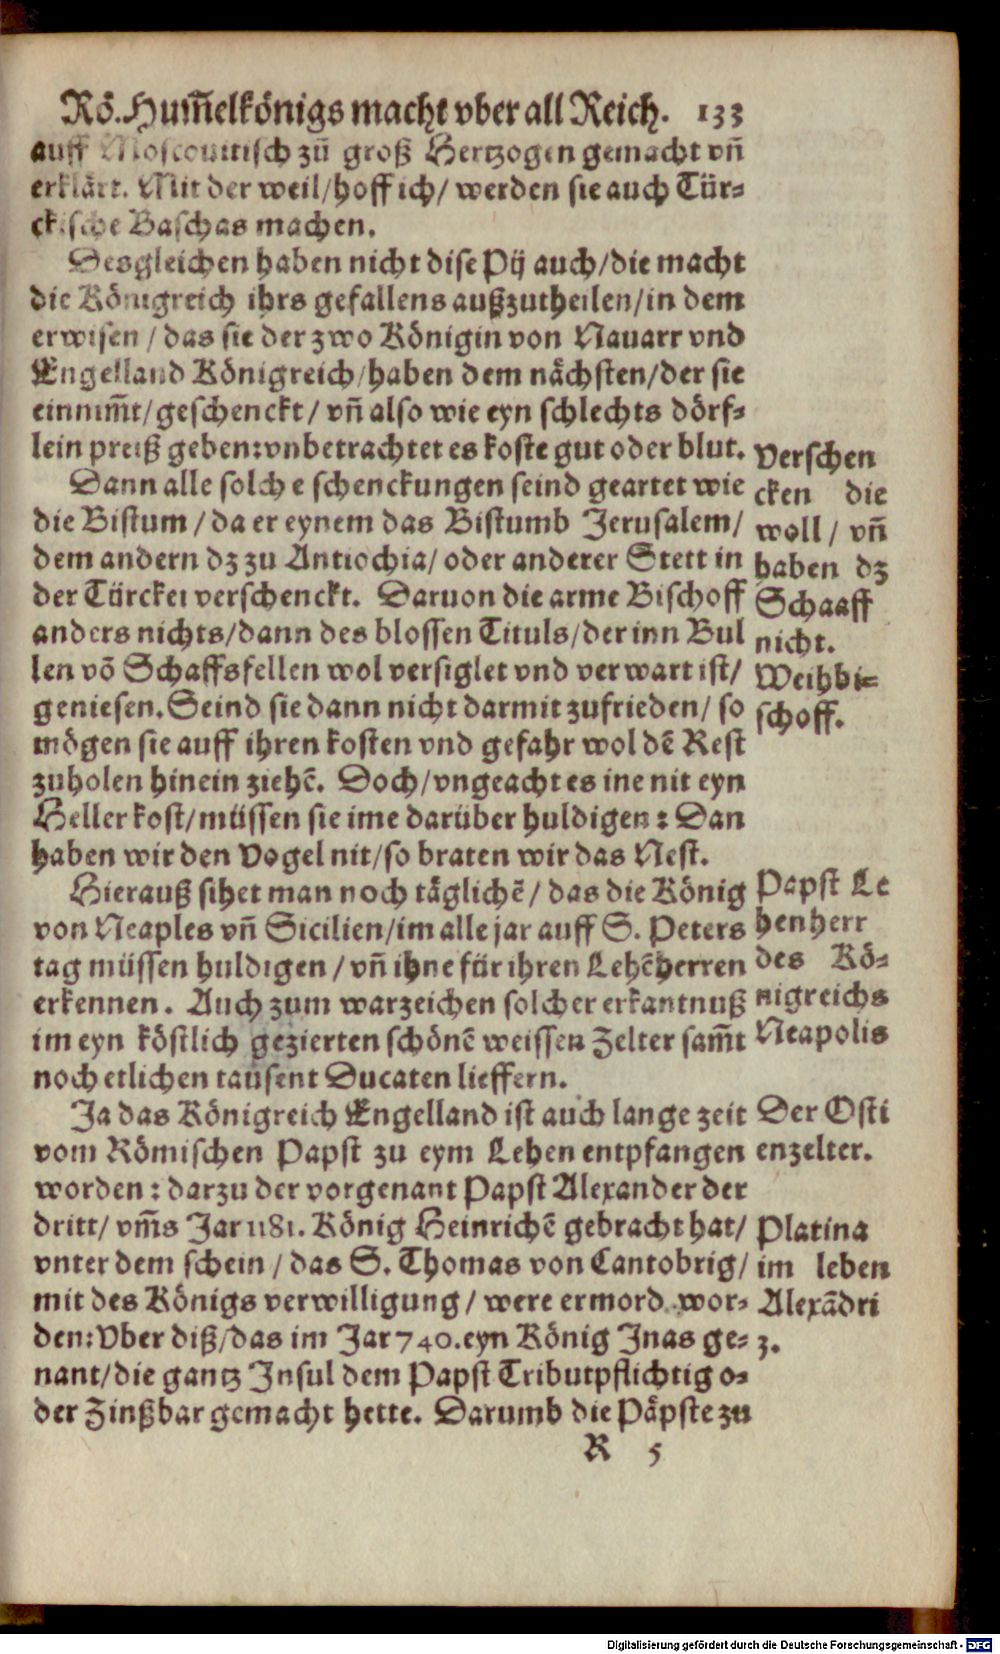 Rö. Hum̃elkönigs macht vber all Reich. 133
auff Moscouitisch zů groß Hertzogen gemacht vñ
erklärt. Mit der weil/ hoff ich/ werden sie auch Tür-
ckische Baschas machen.
Desgleichen haben nicht dise Pij auch/ die macht
die Königreich ihrs gefallens außzutheilen/ in dem
erwisen / das sie der zwo Königin von Nauarr vnd
Engelland Königreich/ haben dem nächsten/ der sie
einnim̃t/ geschenckt / vñ also wie eyn schlechts dörf-
lein preiß geben: vnbetrachtet es koste gut oder blut.
Dann alle solche schenckungen seind geartet wie
die Bistum / da er eynem das Bistumb Jerusalem/
dem andern dz zu Antiochia/ oder anderer Stett in
der Türckei verschenckt. Daruon die arme Bischoff
anders nichts/ dann des blossen Tituls/ der inn Bul
len võ Schaffsfellen wol versiglet vnd verwart ist/
geniesen. Seind sie dann nicht darmit zufrieden/ so
mögen sie auff ihren kosten vnd gefahr wol dẽ Rest
zuholen hinein ziehẽ. Doch/ vngeacht es ine nit eyn
Heller kost/ müssen sie ime darüber huldigen: Dan
haben wir den Vogel nit/ so braten wir das Nest.
Hierauß sihet man noch täglichẽ/ das die König
von Neaples vñ Sicilien/ im alle jar auff S. Peters
tag müssen huldigen / vñ ihne für ihren Lehẽherren
erkennen. Auch zum warzeichen solcher erkantnuß
im eyn köstlich gezierten schönẽ weissen Zelter sam̃t
noch etlichen tausent Ducaten lieffern.
Ja das Königreich Engelland ist auch lange zeit
vom Römischen Papst zu eym Lehen entpfangen
worden: darzu der vorgenant Papst Alexander der
dritt/ vm̃s Jar 1181. König Heinrichẽ gebracht hat/
vnter dem schein / das S. Thomas von Cantobrig/
mit des Königs verwilligung / were ermord wor-
den: Vber diß/ das im Jar 740. eyn König Inas ge-
nant/ die gantz Insul dem Papst Tributpflichtig o-
der Zinßbar gemacht hette. Darumb die Päpste zu
R 5
Verschen
cken die
woll/ vñ
haben dz
Schaaff
nicht.
Weihbi-
schoff.
Papst Le
henherr
des Kö-
nigreichs
Neapolis
Der Osti
enzelter.
Platina
im leben
Alexãdri
3.
Digitalisierung gefördert durch die Deutsche Forschungsgemeinschaft - DFG